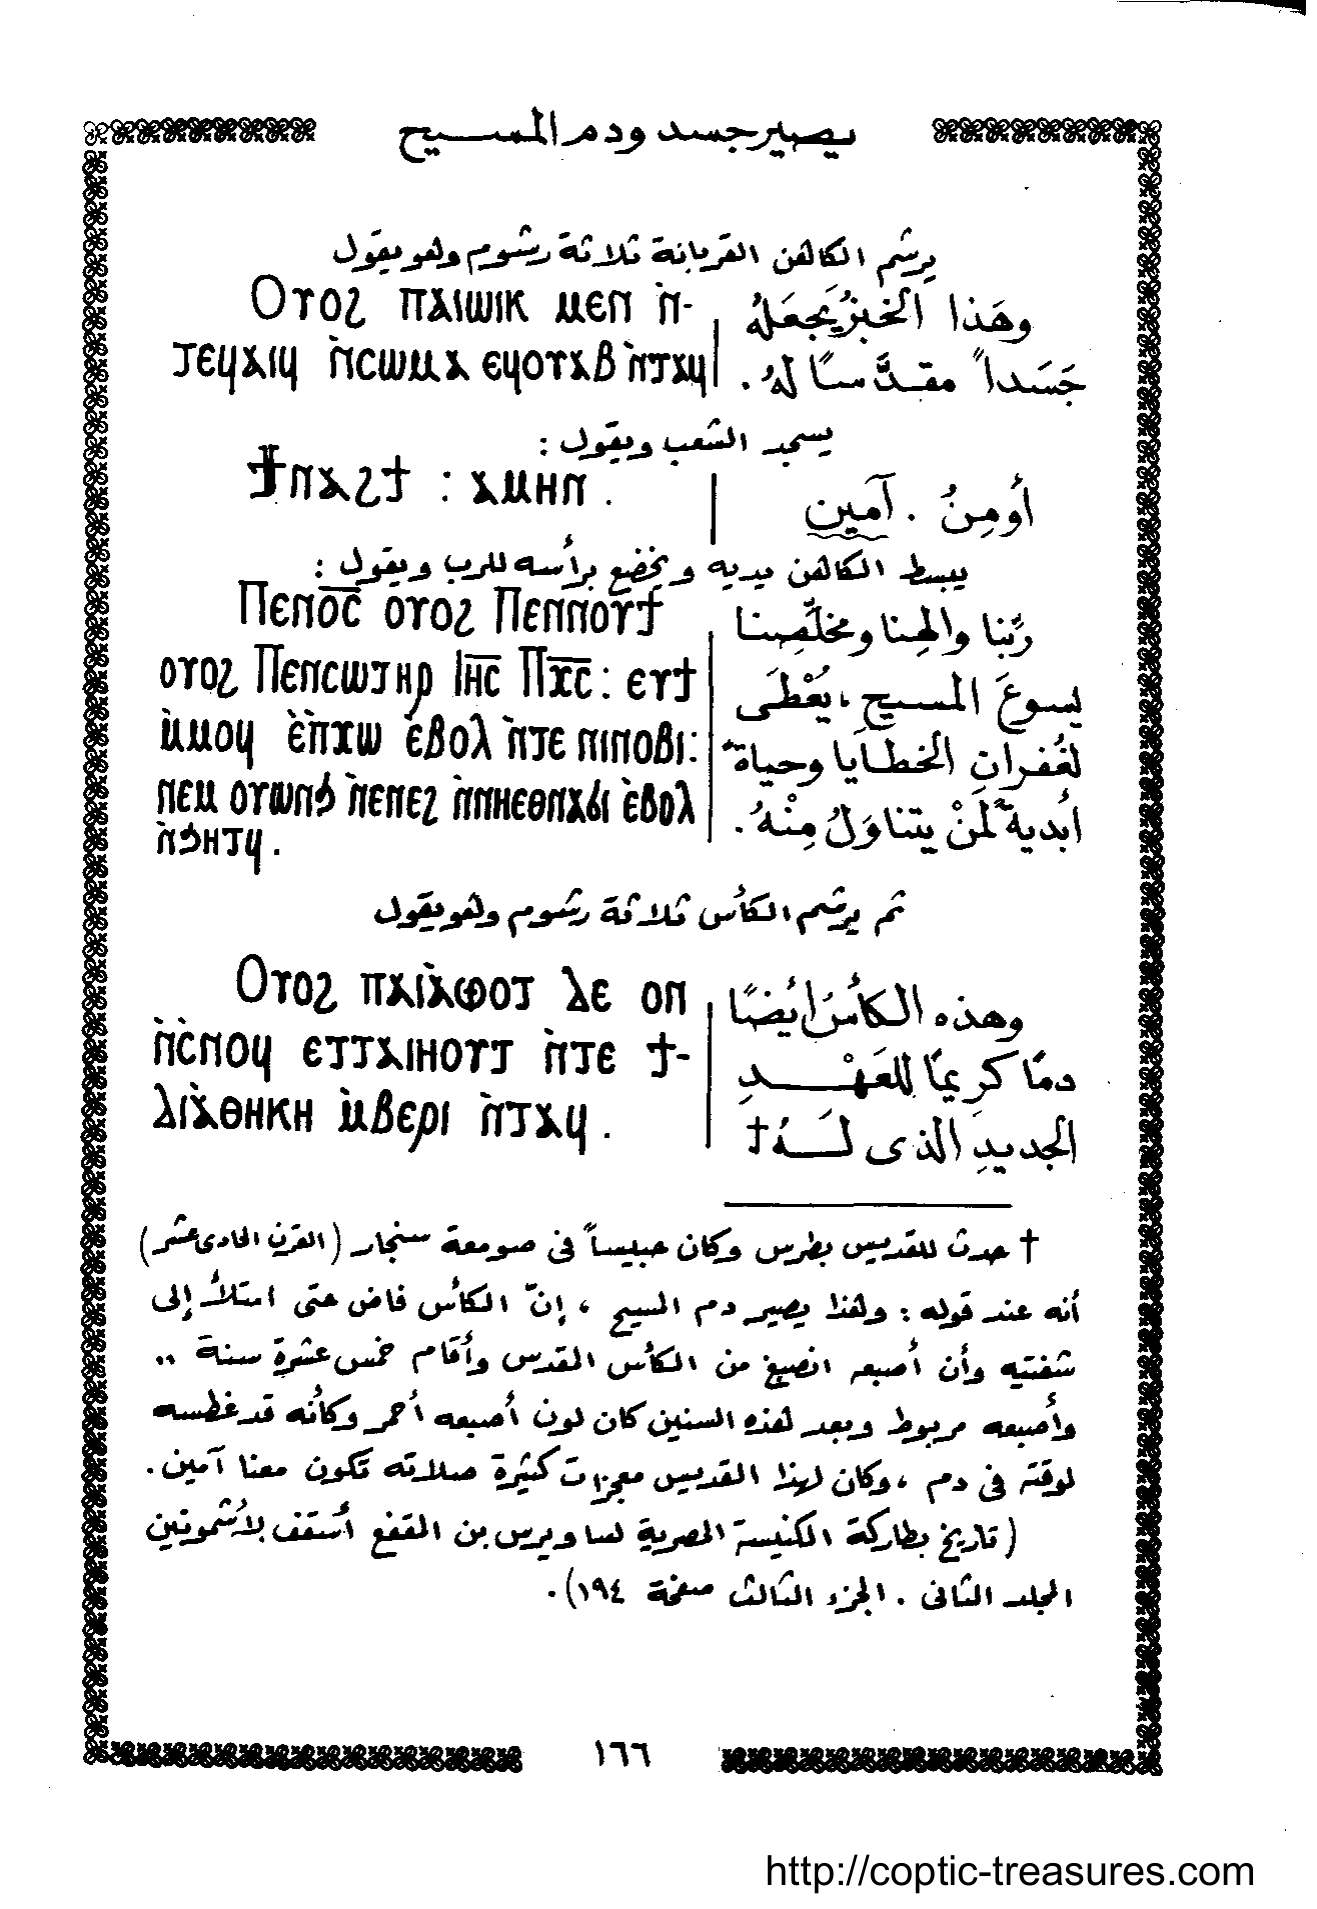 يصير جسد ودم المسيح
يرشم الكاهن القربانة ثلاثة رشوم وهو يقول
Ⲟⲩⲟϩ ⲡⲁⲓⲱⲓⲕ ⲙⲉⲛ ⲛ̀-
ⲧⲉϥⲁⲓϥ ⲛ̀ⲥⲱⲙⲁ ⲉϥⲟⲩⲁⲃ ⲛ̀ⲧⲁϥ
وهَذا الخبزُ يَجعَلهُ
جَسَداً مقدَّسًا لهُ.
يسجد الشعب ويقول :
Ϯⲛⲁϩϯ : ⲁⲙⲏⲛ .
أومِنُ . آمين
يبسط الكاهن يديه ويخضع برأسه للرب ويقول :
Ⲡⲉⲛⲟ̅ⲥ̅ ⲟⲩⲟϩ Ⲡⲉⲛⲛⲟⲩϯ
ⲟⲩⲟϩ Ⲡⲉⲛⲥⲱⲧⲏⲣ Ⲓⲏ̅ⲥ̅ Ⲡⲭ̅ⲥ̅ : ⲉⲩϯ
ⲙ̀ⲙⲟϥ ⲉ̀ⲡ̀ⲭⲱ ⲉ̀ⲃⲟⲗ ⲛ̀ⲧⲉ ⲛⲓⲛⲟⲃⲓ:
ⲛⲉⲙ ⲟⲩⲱⲛϧ ⲛ̀ⲉⲛⲉϩ ⲛ̀ⲛⲏⲉⲑⲛⲁϭⲓ ⲉ̀ⲃⲟⲗ
ⲛ̀ϧⲏⲧϥ .
ربَّنا والهنا ومخلِّصِنا
يسوعَ المسيحِ، يُعْطَى
لغُفرانِ الخطايا وحياةً
أبديةً لمَنْ يتناوَلُ مِنْهُ.
ثم يرشم الكأس ثلاثة رشوم وهو يقول
Ⲟⲩⲟϩ ⲡⲁⲓⲁ̀ⲫⲟⲧ ⲇⲉ ⲟⲛ
ⲛ̀ⲥ̀ⲛⲟϥ ⲉⲧⲧⲁⲓⲏⲟⲩⲧ ⲛ̀ⲧⲉ ϯ-
ⲇⲓⲁ̀ⲑⲏⲕⲏ ⲙ̀ⲃⲉⲣⲓ ⲛ̀ⲧⲁϥ .
وهذه الكأسُ أيُضًا
دمًا كرِيمًا للعَهْدِ
الجديدِ الذى لَهُ†
† حدث للقديس بطرس وكان حبيساً فى صومعة سنجار (القرن الحادى عشر)
أنه عند قوله : وهذا يصير دم المسيح ، إنّ الكأس فاض حتى امتلأ إلى
شفتيه وأن أصبعه انصبغ من الكأس المقدس وأقام خمس عشرة سنة ..
وأصبعه مربوط وبعد هذه السنين كان لون أصبعه أحمر وكأنه قد غطسه
لوقته فى دم ، وكان لهذا القديس معجزات كثيرة صلاته تكون معنا آمين .
( تاريخ بطاركة الكنيسة المصرية لساويرس بن المقفع أسقف الأشمونين
المجلد الثانى . الجزء الثالث صفحة ١٩٤).
١٦٦
http://coptic-treasures.com